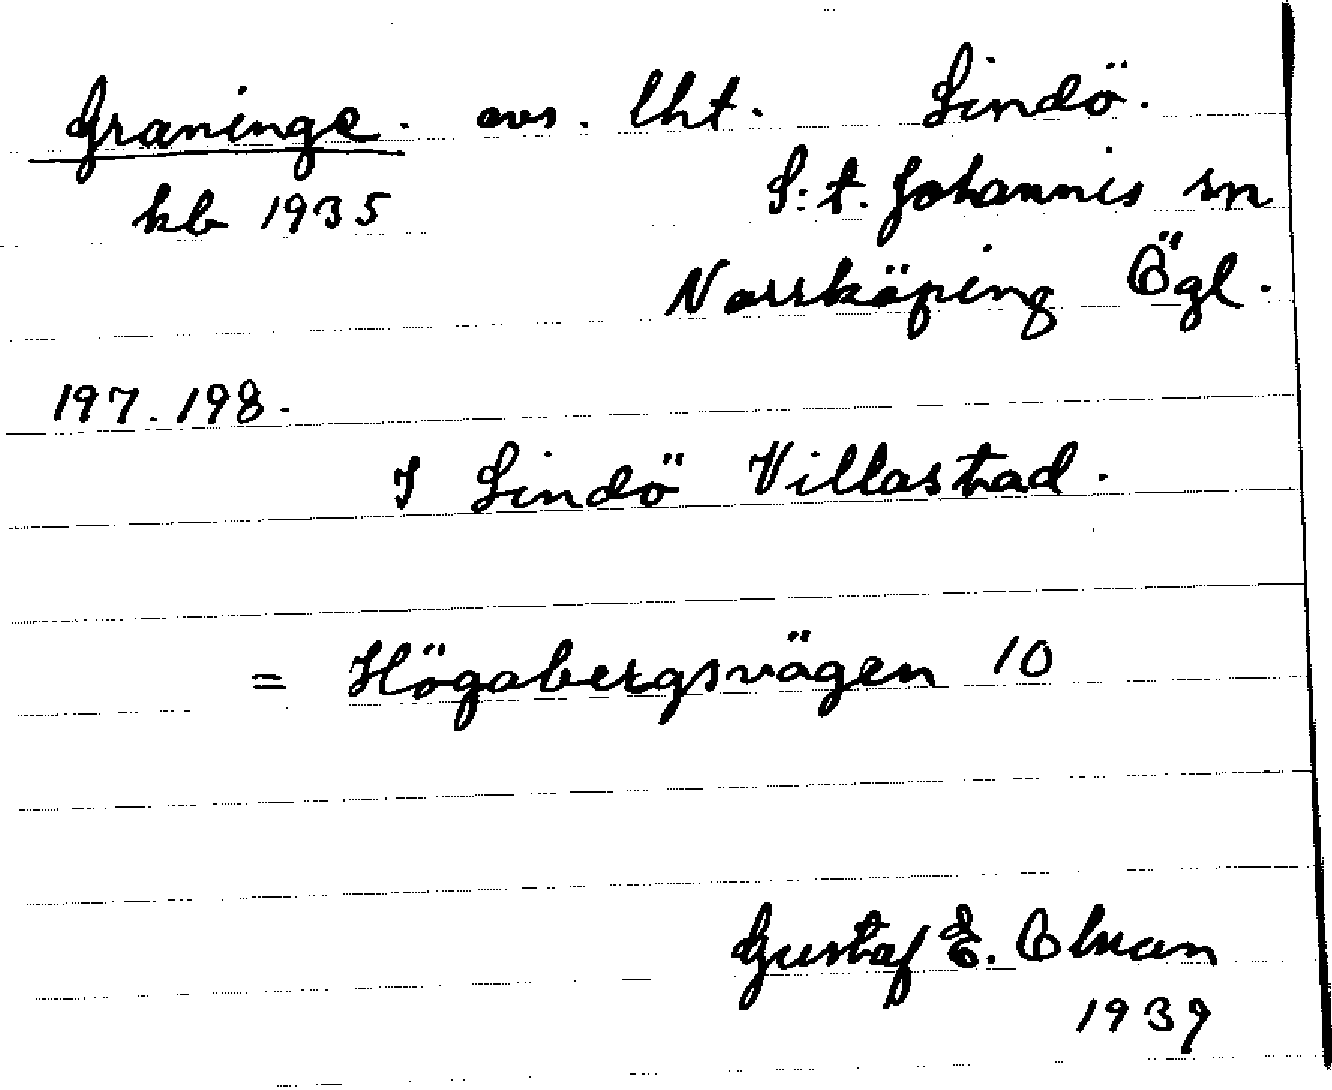 Graninge. avs. lht. Lindö.
kb 1935 S:t. Johannis sn
Norrköping Ögl.
197. 198.
I Lindö Villastad.
= Högabergsvägen 10
Gustaf E. Olman
1939